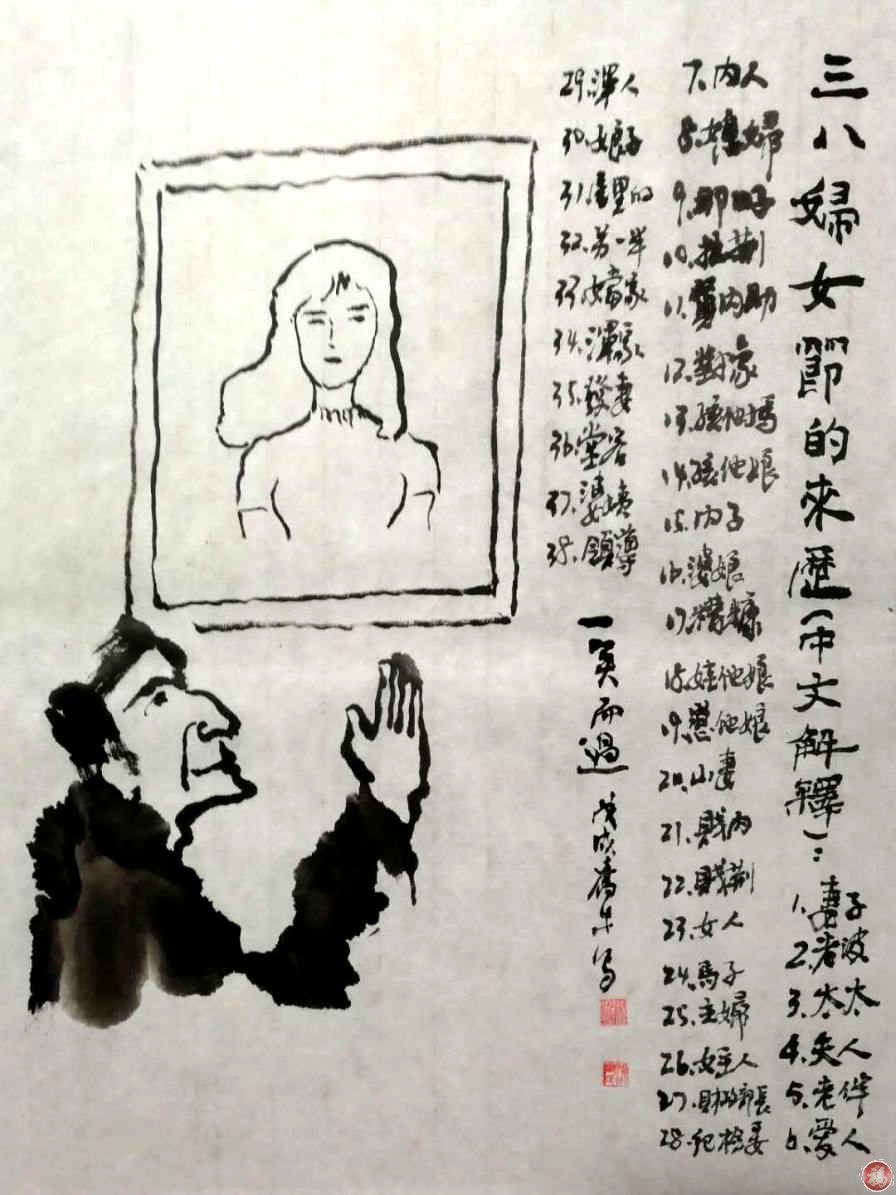 三八婦女節的來歷(中文解釋):
1.妻子
2.老婆
3.太太
4.夫人
5.老伴
6.愛人
7.內人
8.媳婦
9.那口子
10.拙荊
11.賢內助
12.對象
13.孩他媽
14.孩他娘
15.內子
16.婆娘
17.糟糠
18.娃他娘
19.崽他娘
20.山妻
21.賤內
22.賤荊
23.女人
24.馬子
25.主婦
26.女主人
27.財政部長
28.紀檢委
29.渾人
30.娘子
31.屋里的
32.另一半
33.女當家
34.渾家
35.發妻
36.堂客
37.婆姨
38.領導
一笑而過
戊戌
寫